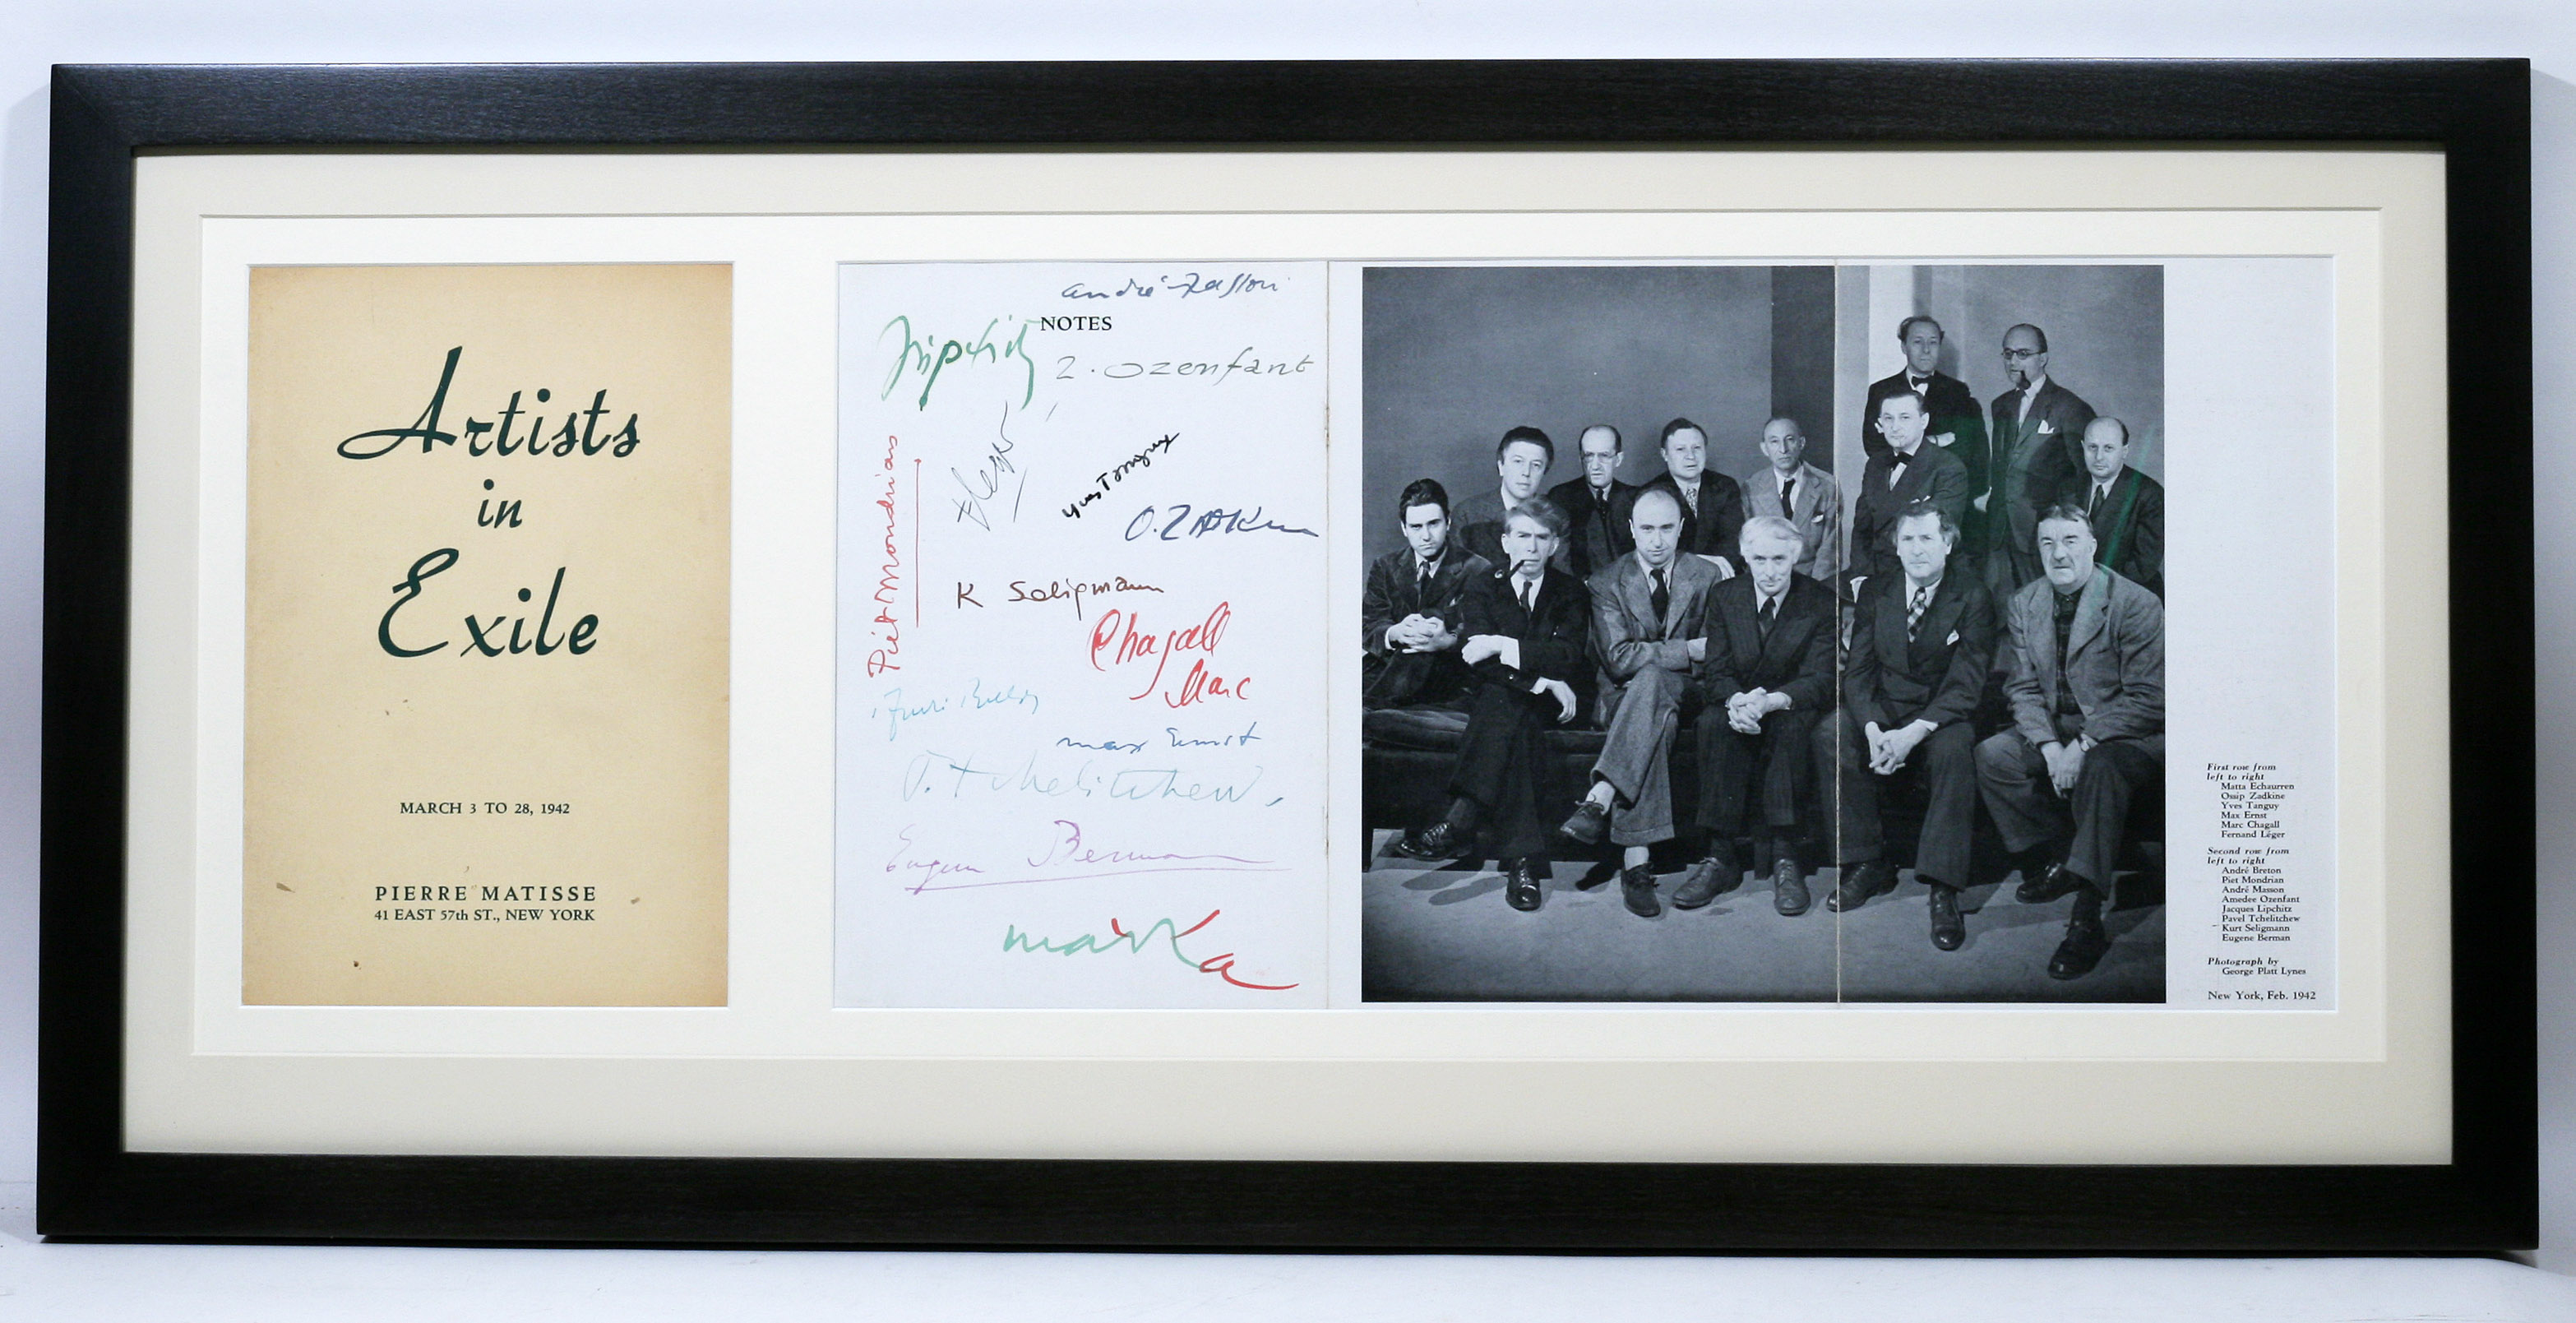 Artists
in
Exile
MARCH 3 TO 28, 1942
PIERRE MATISSE
41 EAST 57th ST., NEW YORK
andré Masson
NOTES
Lipchitz
a. ozenfant
FLeger
Yves Tanguy
Piet Mondrian
O. ZADKine
K Seligmann
Chagall
Marc
max Ernst
P. Tchelitchew.
Eugene Berman
matta
First row from
left to right
Matta Echaurren
Ossip Zadkine
Yves Tanguy
Max Ernst
Marc Chagall
Fernand Léger
Second row from
left to right
André Breton
Piet Mondrian
André Masson
Amedee Ozenfant
Jacques Lipchitz
Pavel Tchelitchew
Kurt Seligmann
Eugene Berman
Photograph by
George Platt Lynes
New York, Feb. 1942